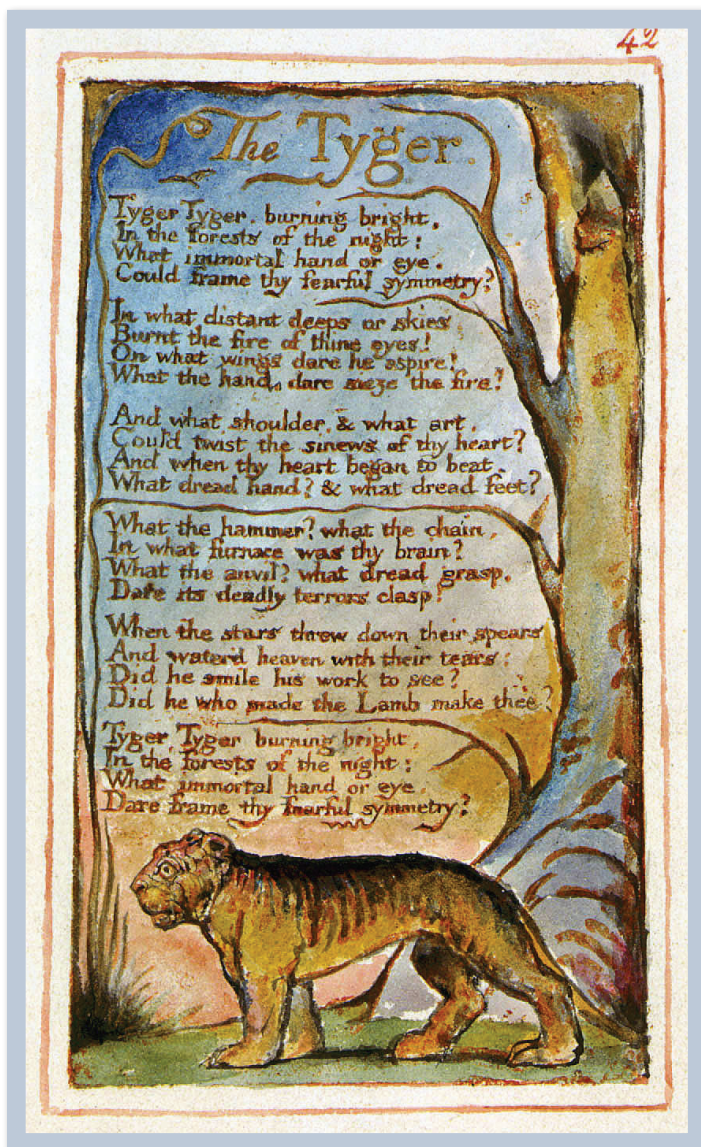 42
The Tyger.
Tyger Tyger. burning bright,
In the forests of the night:
What immortal hand or eye.
Could frame thy fearful symmetry?
In what distant deeps or skies
Burnt the fire of thine eyes!
On what wings dare he aspire!
What the hand, dare sieze the fire?
And what shoulder, & what art,
Could twist the sinews of thy heart?
And when thy heart began to beat,
What dread hand? & what dread feet?
What the hammer? what the chain,
In what furnace was thy brain?
What the anvil? what dread grasp,
Dare its deadly terrors clasp!
When the stars threw down their spears
And water'd heaven with their tears:
Did he smile his work to see?
Did he who made the Lamb make thee?
Tyger Tyger burning bright,
In the forests of the night:
What immortal hand or eye,
Dare frame thy fearful symmetry?